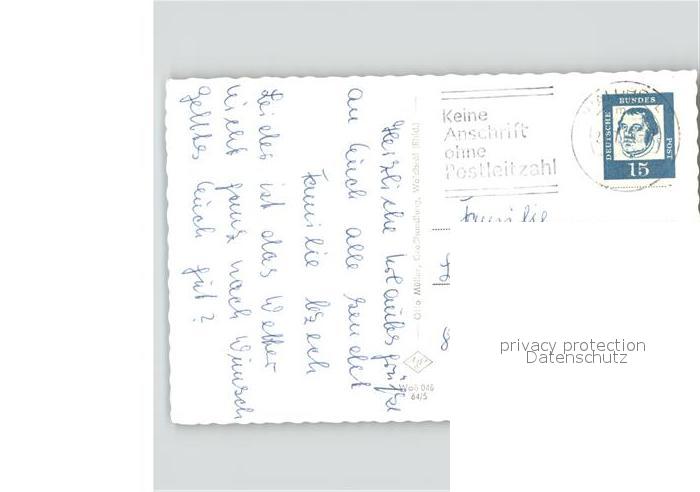 Herzliche Urlaubsgrüße
an Euch alle sendet
Familie
Leider ist das Wetter
nicht ganz nach Wunsch
Gehts Euch gut?
Otto Müller, Großhandlung, Waldsolt (Rhld.)
Wa5 046
64/5
Keine
Anschrift
ohne
Postleitzahl
DEUTSCHE
BUNDES
POST
15
Familie
privacy protection
Datenschutz